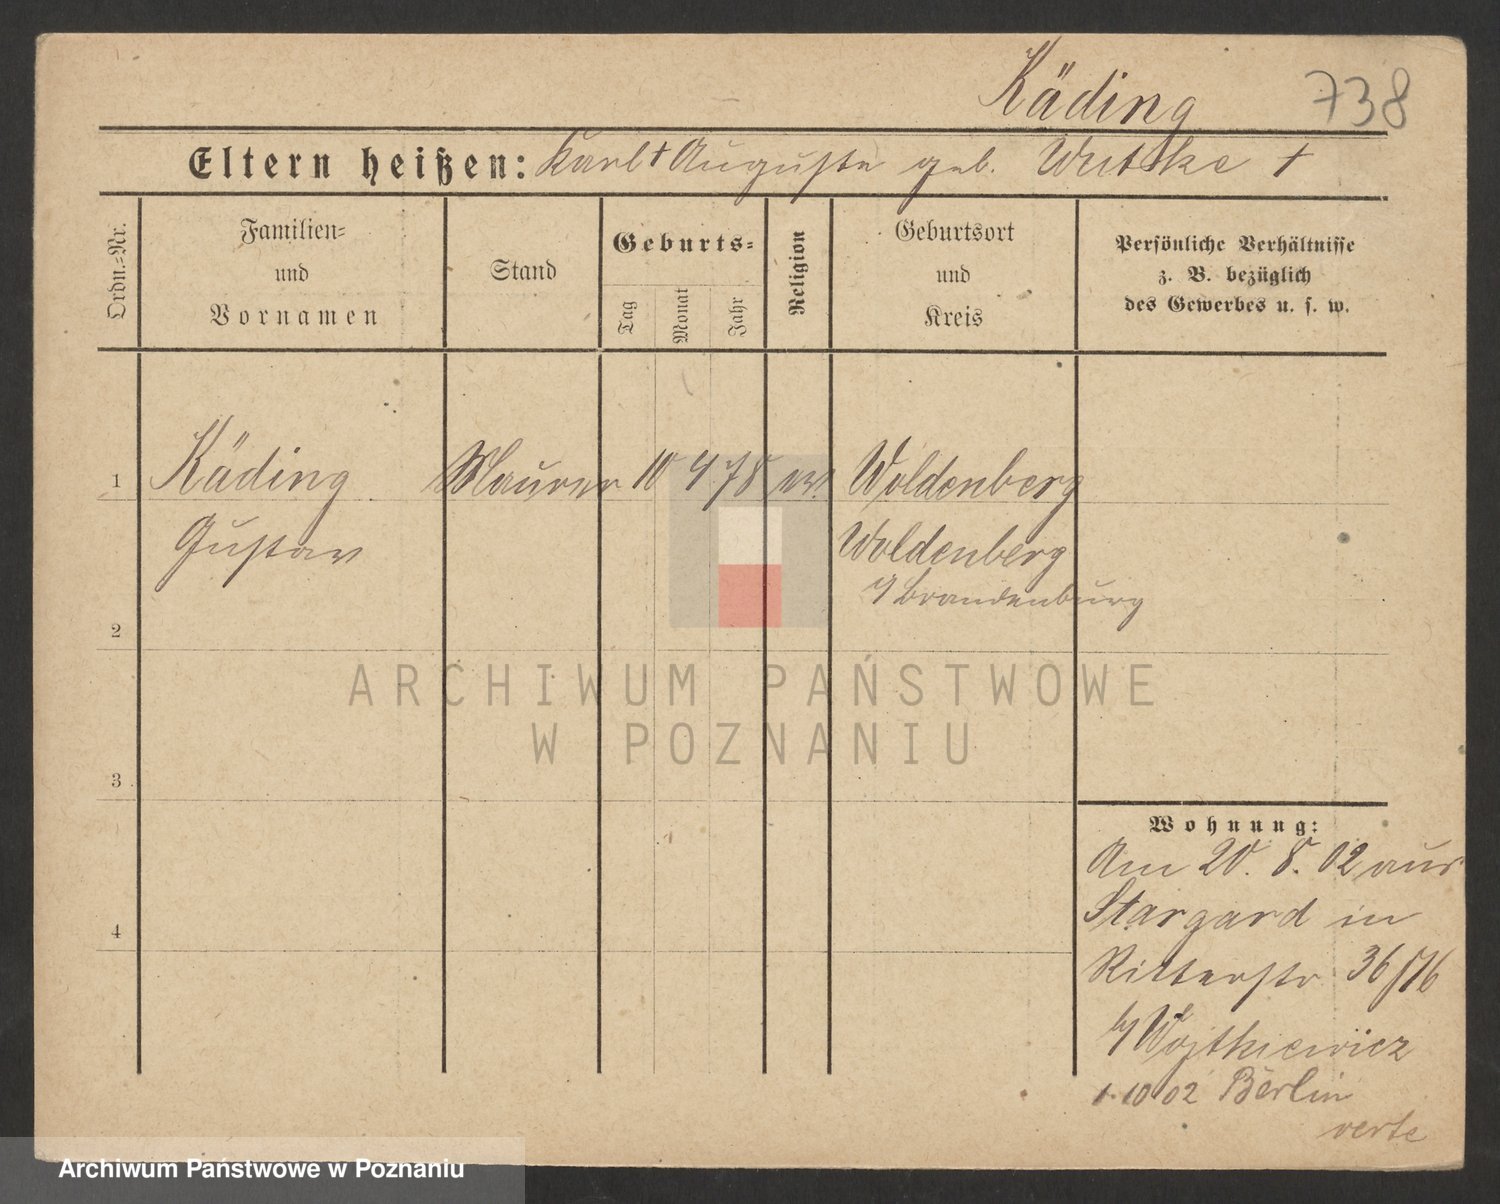 Käding 738
Eltern heißen: Karl † Auguste geb. Wuttke †
Ordn.-Nr.
Familien-
und
Vornamen
Stand
Geburts-
Tag
Monat
Jahr
Religion
Geburtsort
und
Kreis
Persönliche Verhältnisse
z. B. bezüglich
des Gewerbes u. s. w.
1 Käding Maurer 10 4 78 ev. Woldenberg
Gustav Woldenberg
Brandenburg
2
3
4
Wohnung:
Am 20. 8. 02 aus
Stargard in
Ritterstr 36/
b/ Wojtkiewicz
1.10 02 Berlin
verte
ARCHIWUM PAŃSTWOWE
W POZNANIU
Archiwum Państwowe w Poznaniu